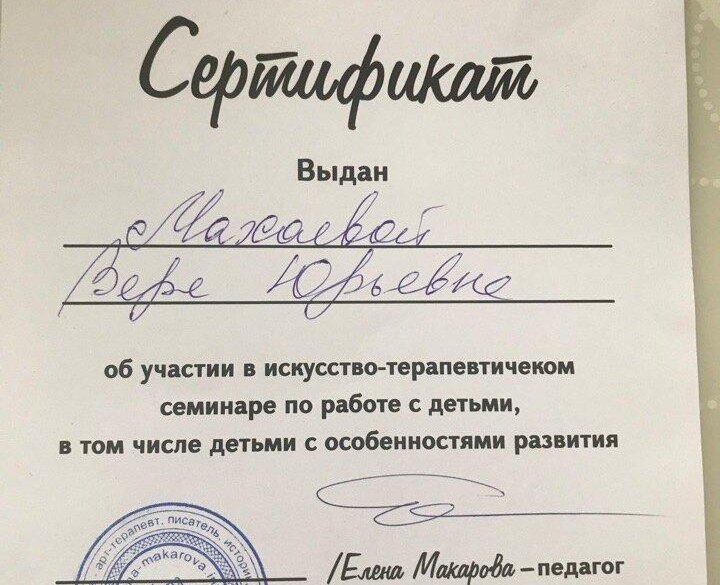 Сертификат
Выдан
Махаевой
Вере Юрьевне
об участии в искусство-терапевтичеком
семинаре по работе с детьми,
в том числе детьми с особенностями развития
арт-терапевт, писатель, истори
na-makarova.i
/Елена Макарова – педагог